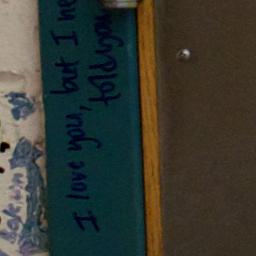 I love you, but I ne
told you